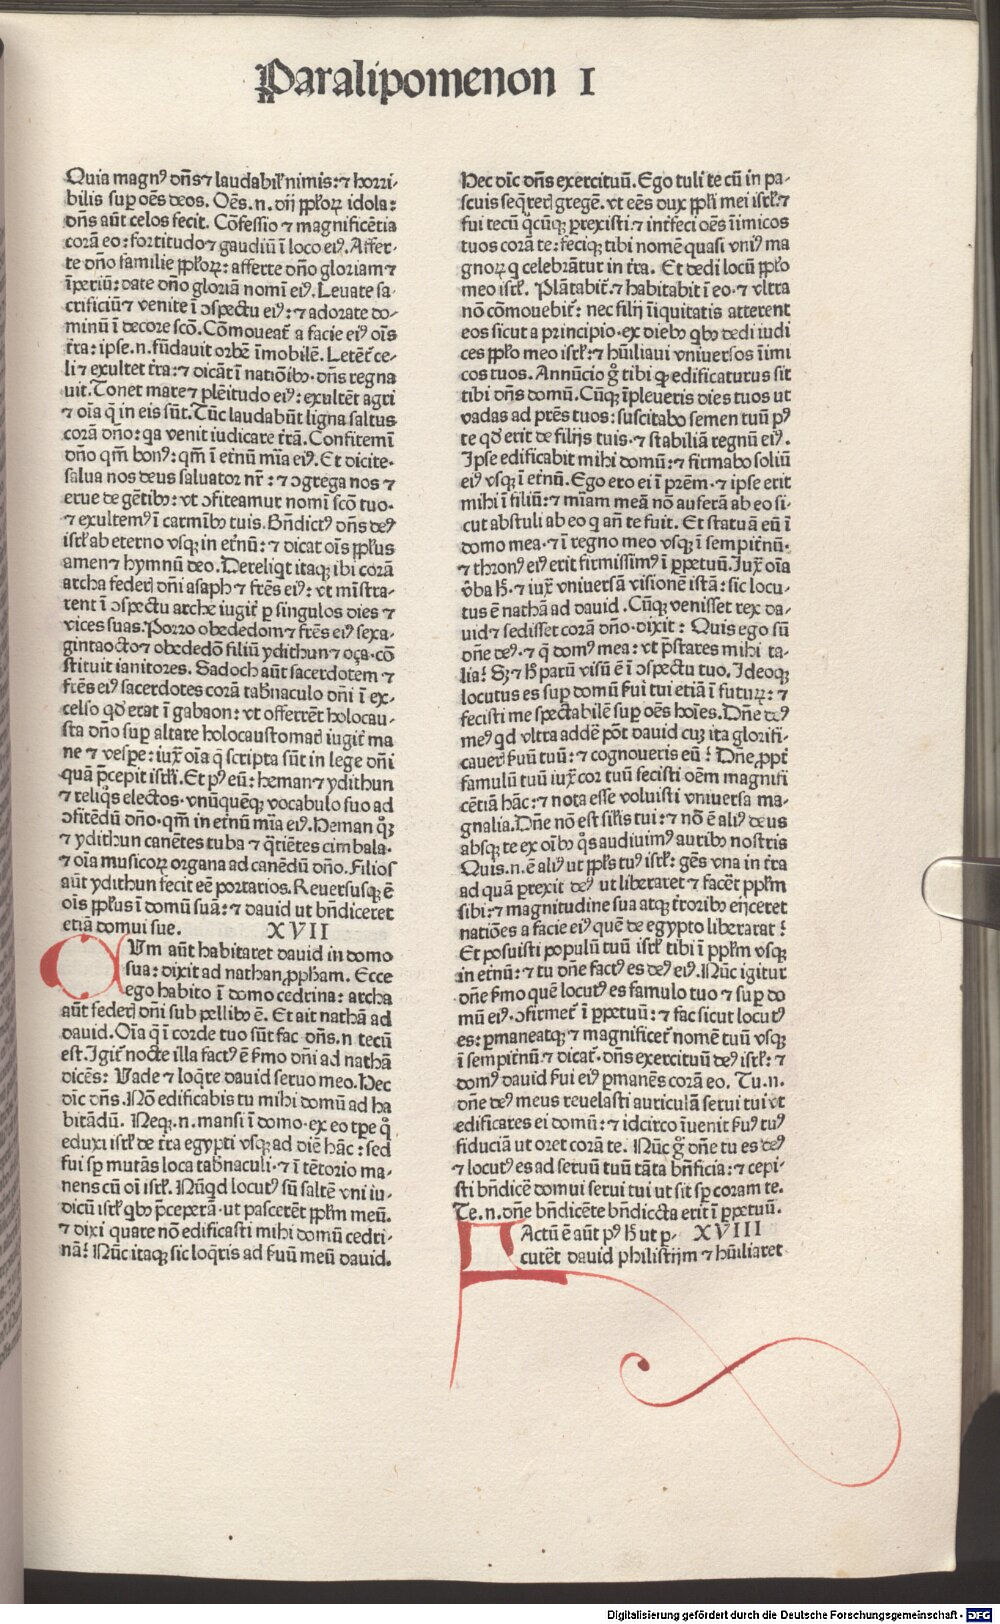 Paralipomenon I
Quia magnꝰ dn̄s ⁊ laudabil̓ nimis: ⁊ horri-
bilis sup oēs deos. Oēs .n. dij ppl̓oꝝ idola:
dn̄s aūt celos fecit. Cōfessio ⁊ magnificētia
corā eo: fortitudo ⁊ gaudiū ī loco eiꝰ. Affer-
te dn̄o familie ppl̓oꝝ: afferte dn̄o gloriam ⁊
īperiū: date dn̄o gloriā nomī eiꝰ. Leuate sa-
crificiū ⁊ venite ī ↄspectu eiꝰ: ⁊ adorate do-
minū ī decore scō. Cōmoueat̓ a facie eiꝰ oīs
t̓ra: ipse .n. fūdauit orbē īmobilē. Letēt̓ ce-
li ⁊ exultet t̓ra: ⁊ dicāt ī natiōibꝰ. dn̄s regna
uit. Tonet mare ⁊ plēitudo eiꝰ: exultēt agri
⁊ oīa q̄ in eis sūt. Tūc laudabūt ligna saltus
corā dn̄o: qa venit iudicare t̓rā. Confitemī
dn̄o qm̄ bonꝰ: qm̄ ī et̓nū mīa eiꝰ. Et dicite.
salua nos deus saluator nr̄: ⁊ ↄgrega nos ⁊
erue de gētibꝰ: vt ↄfiteamur nomī scō tuo.
⁊ exultemꝰ ī carmībꝰ tuis. Bn̄dictꝰ dn̄s deꝰ
isrl̓ ab eterno vsqꝫ in et̓nū: ⁊ dicat oīs ppl̓us
amen ⁊ hymnū deo. Dereliqt itaqꝫ ibi corā
archa federꝭ dn̄i asaph ⁊ frēs eiꝰ: vt mīstra-
rent ī ↄspectu arche iugit̓ p singulos dies ⁊
vices suas. Porro obededom ⁊ frēs eiꝰ sexa-
gintaocto ⁊ obededō filiū ydithun ⁊ oça. cō
stituit ianitores. Sadoch aūt sacerdotem ⁊
frēs eiꝰ sacerdotes corā tab̓naculo dn̄i ī ex-
celso qd̓ erat ī gabaon: vt offerrēt holocau-
sta dn̄o sup altare holocaustomaꝝ iugit̓ ma
ne ⁊ vespe: iux̄ oīa q̄ scripta sūt in lege dn̄i
quā p̄cepit isrl̓i. Et pꝰ eū: heman ⁊ ydithun
⁊ reliq̄s electos. vnūquēqꝫ vocabulo suo ad
ↄfitēdū dn̄o. qm̄ in et̓nū mīa eiꝰ. Heman qꝫ̄
⁊ ydithun canētes tuba ⁊ q̄tiētes cimbala.
⁊ oīa musicoꝝ organa ad canēdū dn̄o. Filios
aūt ydithun fecit eē portarios. Reuersusqꝫ ē
oīs ppl̓us ī domū suā: ⁊ dauid ut bn̄diceret
etiā domui sue. XVII
CVm aūt habitaret dauid in domo
sua: dixit ad nathan ꝓpham. Ecce
ego habito ī domo cedrina: archa
aūt federꝭ dn̄i sub pellibꝰ ē. Et ait nathā ad
dauid. Oīa q̄ ī corde tuo sūt fac. dn̄s .n tecū
est. Igit̓ nocte illa factꝰ ē s̓mo dn̄i ad nathā
dicēs: Vade ⁊ loq̄re dauid seruo meo. Hec
dīc dn̄s. Nō edificabis tu mihi domū ad ha
bitādū. Neqꝫ .n. mansi ī domo. ex eo tpe q̄
eduxi isrl̓ de t̓ra egypti vsqꝫ ad diē hāc: sed
fui sp mutās loca tab̓naculi. ⁊ ī tētorio ma-
nens cū oī isrl̓. Nūqd locutꝰ sū saltē vni iu-
dicū isrl̓ qbꝰ p̄ceperā. ut pascerēt ppl̓m meū.
⁊ dixi quare nō edificasti mihi domū cedri-
nā? Nūc itaqꝫ sic loq̄ris ad s̓uū meū dauid.
Hec dīc dn̄s exercituū. Ego tuli te cū in pa-
scuis seq̄rerꝭ gregē. vt eēs dux ppl̓i mei isrl̓. ⁊
fui tecū q̄cūqꝫ prexisti: ⁊ int̓feci oēs īimicos
tuos corā te: feciqꝫ tibi nomē quasi vniꝰ ma
gnoꝝ q celebrātur in t̓ra. Et dedi locū ppl̓o
meo isrl̓. Plātabit̓. ⁊ habitabit ī eo. ⁊ vltra
nō cōmouebit̓: nec filij īiquitatis atterent
eos sicut a principio. ex diebꝰ qbꝰ dedi iudi
ces ppl̓o meo isrl̓: ⁊ hūiliaui vniuersos īimi
cos tuos. Annūcio g̊ tibi qꝙ edificaturus sit
tibi dn̄s domū. Cūqꝫ īpleueris dies tuos ut
vadas ad prēs tuos: suscitabo semen tuū pꝰ
te qd̓ erit de filijs tuis. ⁊ stabiliā regnū eiꝰ.
Ipse edificabit mihi domū: ⁊ firmabo soliū
eiꝰ vsqꝫ ī et̓nū. Ego ero ei ī prēm. ⁊ ipse erit
mihi ī filiū: ⁊ mīam meā nō auferā ab eo si-
cut abstuli ab eo q an̄ te fuit. Et statuā eū ī
domo mea. ⁊ ī regno meo vsqꝫ ī sempit̓nū.
⁊ thronꝰ eiꝰ erit firmissimꝰ ī ppetuū. Iux̄ oīa
v̓ba h̓. ⁊ iux̄ vniuersā visionē istā: sic locu-
tus ē nathā ad dauid. Cūqꝫ venisset rex da-
uid ⁊ sedisset corā dn̄o. dixit: Quis ego sū
dn̄e deꝰ. ⁊ q̄ domꝰ mea: vt p̄stares mihi ta-
lia? Sꝫ ⁊ h̓ parū visū ē ī ↄspectu tuo. Ideoqꝫ
locutus es sup domū s̓ui tui etiā ī futuꝝ: ⁊
fecisti me spectabilē sup oēs hoīes. Dn̄e deꝰ
meꝰ qd vltra addē pōt dauid cuꝫ ita glorifi-
caueꝭ s̓uū tuū: ⁊ cognoueris eū? Dn̄e ꝓpt̓
famulū tuū iux̄ cor tuū fecisti oēm magnifi
cētiā hāc: ⁊ nota esse voluisti vniuersa ma-
gnalia. Dn̄e nō est silis tui: ⁊ nō ē aliꝰ deus
absqꝫ te ex oībꝰ q̄s audiuimꝰ auribꝰ nostris
Quis .n. ē aliꝰ ut ppl̓s tuꝰ isrl̓: gēs vna in t̓ra
ad quā prexit deꝰ ut liberaret ⁊ facēt ppl̓m
sibi: ⁊ magnitudine sua atqꝫ t̓roribꝰ eijceret
natiōes a facie eiꝰ quē de egypto liberarat?
Et posuisti populū tuū isrl̓ tibi ī ppl̓m vsqꝫ
in et̓nū: ⁊ tu dn̄e factꝰ es deꝰ eiꝰ. Nūc igitur
dn̄e s̓mo quē locutꝰ es famulo tuo ⁊ sup do
mū eiꝰ. ↄfirmet̓ ī ppetuū: ⁊ fac sicut locutꝰ
es: pmaneatqꝫ ⁊ magnificet̓ nomē tuū vsqꝫ
ī sempit̓nū. ⁊ dicat̓. dn̄s exercituū deꝰ isrl̓: ⁊
domꝰ dauid s̓ui eiꝰ pmanēs corā eo. Tu .n.
dn̄e deꝰ meus reuelasti auriculā serui tui vt
edificares ei domū: ⁊ idcirco īuenit s̓uꝰ tuꝰ
fiduciā ut oret corā te. Nūc g̊ dn̄e tu es deꝰ
⁊ locutꝰ es ad seruū tuū tāta bn̄ficia: ⁊ cepi-
sti bn̄dicē domui serui tui ut sit sp coram te.
Te .n. dn̄e bn̄dicēte bn̄diccta erit ī ppetuū.
FActū ē aūt pꝰ h̓ ut p- XVIII
cutēt dauid philistijm ⁊ hūiliaret
Digitalisierung gefördert durch die Deutsche Forschungsgemeinschaft - DFG